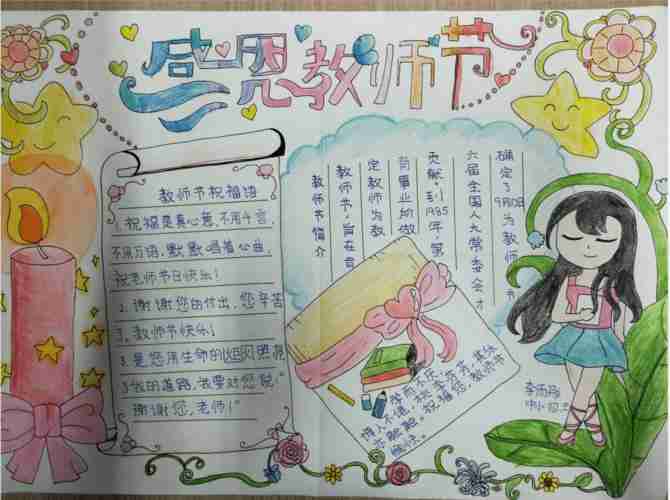 感恩教师节
教师节祝福语
1. 祝福是真心意,不用千言,
不用万语,默默唱着心曲,
祝老师节日快乐!
2. 谢谢您的付出,您辛苦
了,教师节快乐!
3. 是您用生命的
了我的道路,我要对您说"
谢谢您,老师!"
教师节简介
教师节,旨在肯
定教师为教
育事业所做
贡献。到1985年,第
六届全国人大常委会才
确定了9月10日为教师节
学而不厌,
诲人不倦,桃李芬芳,其乐
亦融融。祝福您,教师节
愉快。